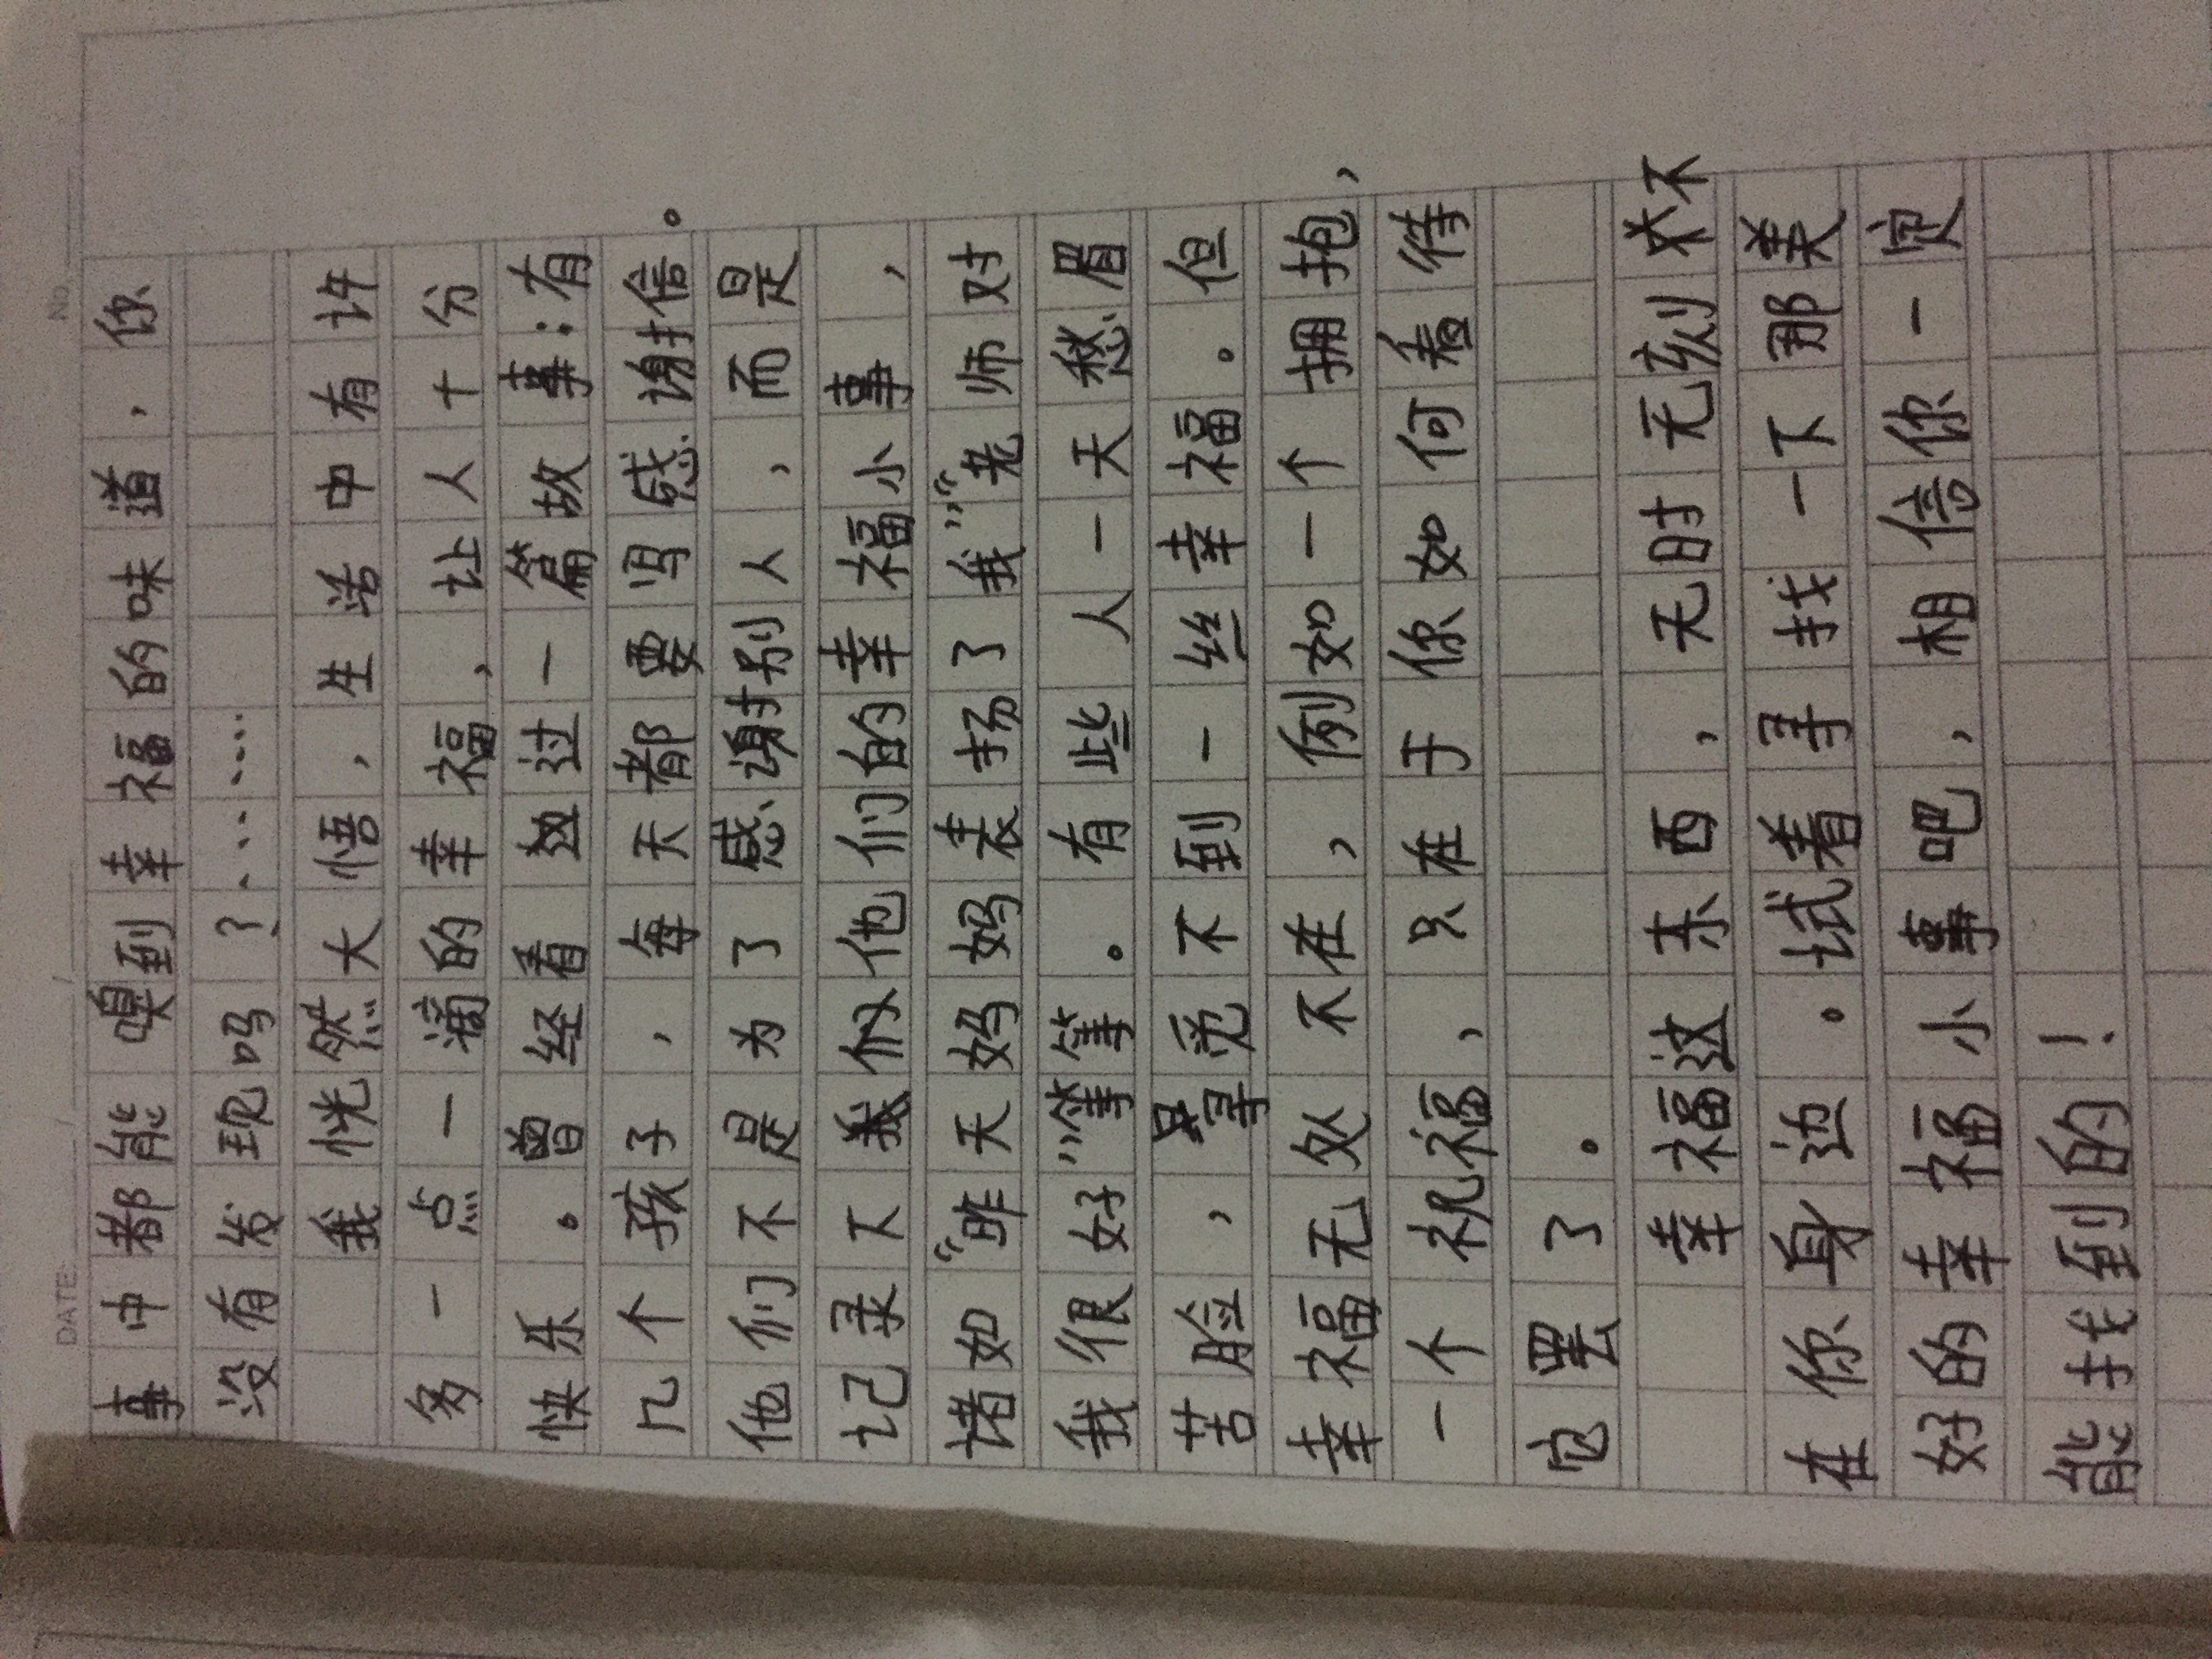 No.
DATE
事中都能嗅到幸福的味道，你
没有发现吗？……
我恍然大悟，生活中有许
多一点一滴的幸福，让人十分
快乐。曾经看过一篇故事：有
几个孩子，每天都要写感谢信。
他们不是为了感谢别人，而是
记录下我们他们的幸福小事，
诸如“昨天妈妈表扬了我”“老师对
我很好”等等。有些人一天愁眉
苦脸，寻觅不到一丝幸福。但
幸福无处不在，例如一个拥抱，
一个祝福，只在于你如何看待
它罢了。
幸福这东西，无时无刻不
在你身边。试着寻找一下那美
好的幸福小事吧，相信你一定
能找到的！